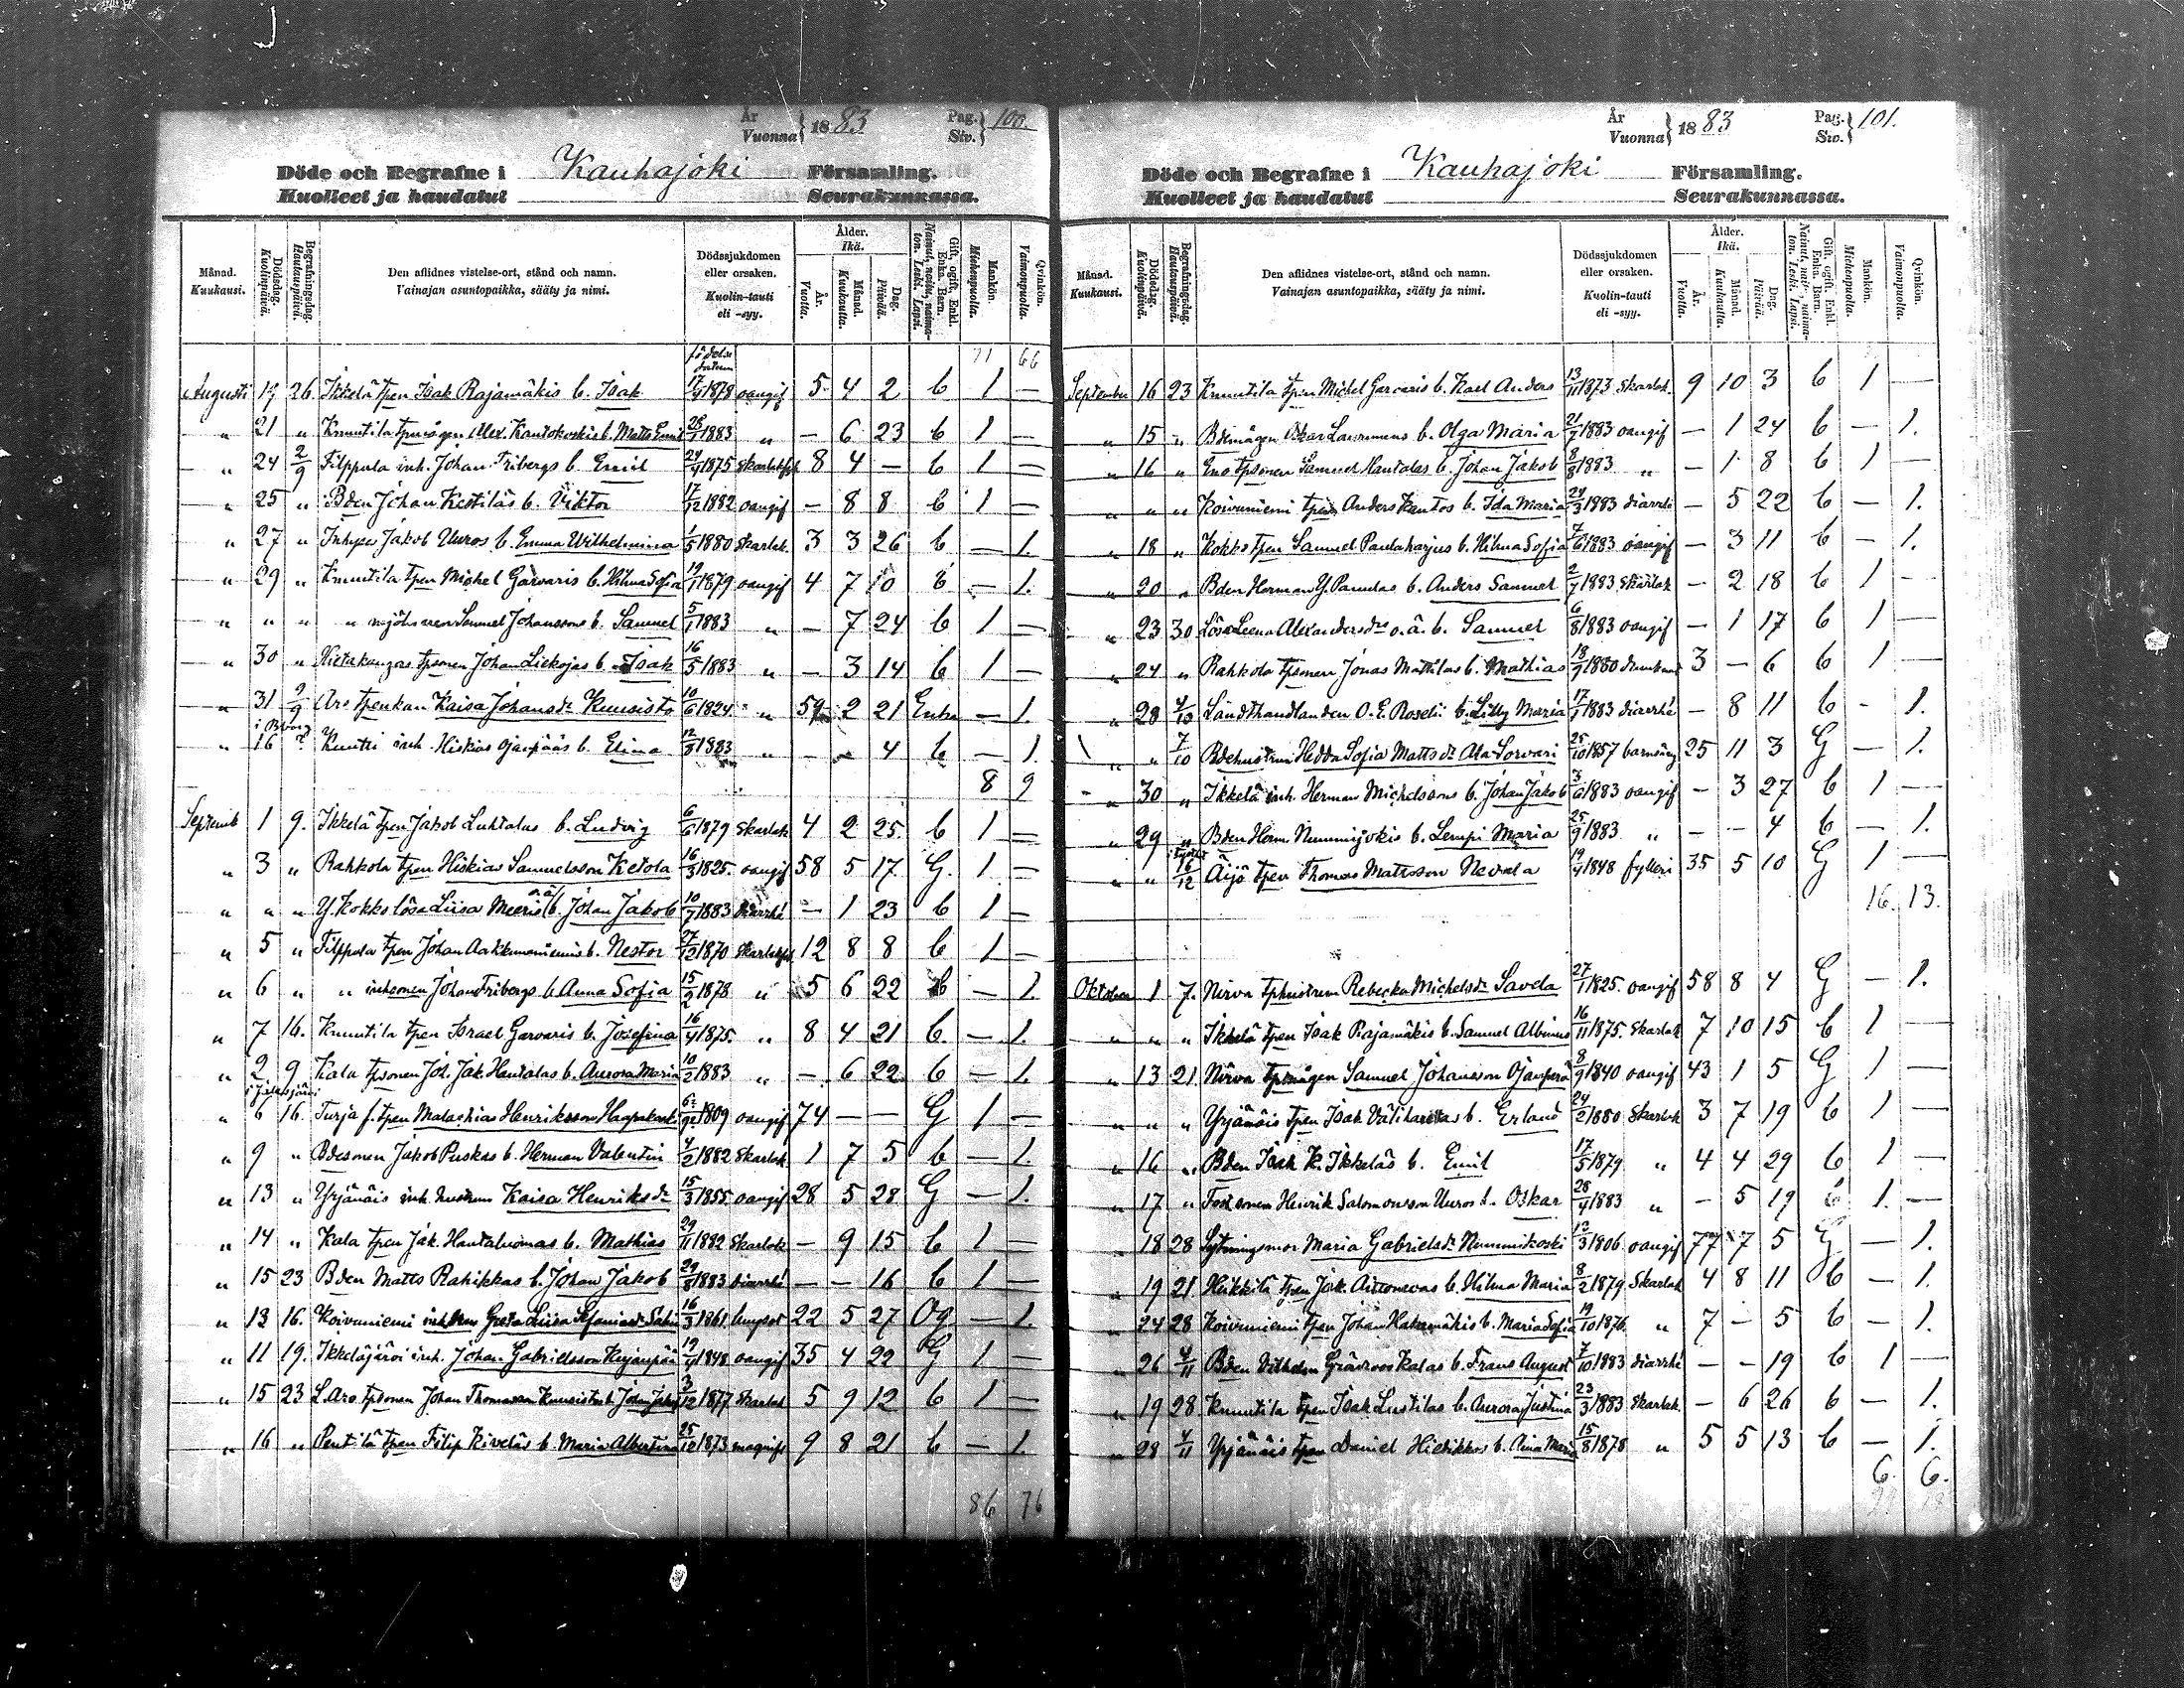 År
Vuonna } 1883 Pag. Siv. } 100.
Döde och Begrafne i Kauhajoki Församling.
Kuolleet ja haudatut Seurakunnassa.
Månad. Kuukausi. Dödsdag. Kuolinpäivä. Begrafningsdag. Hautauspäivä. Den aflidnes vistelse-ort, stånd och namn. Vainajan asuntopaikka, sääty ja nimi. Dödssjukdomen eller orsaken. Kuolin-tauti eli -syy. Ålder. Ikä. År. Vuotta. Månad. Kuukautta. Dag. Päivää. Gift, ogift, Enkl. Enka. Barn. Mankön. Miehenpuolta. Qvinkön. Vaimonpuolta.
födelse datum 71 66
Augusti 19 26 Ikkelä tpen Isak Rajamäkis b. Isak 17/4 1878 oangif 5 4 2 b 1 —
" 21 " Knuutila Alex. b. Matts Emil 28/1 1883 " — 6 23 b 1 —
" 24 2/9 Filppula inh. Johan Fribergs b. Emil 24/4 1875 8 4 — b 1 —
" 25 " Bden Johan Kestiläs b. Viktor 17/12 1882 oangif — 8 8 b 1 —
" 27 " Jakob Uuros b. Emma Wilhelmina 1/5 1880 Skarlak. 3 3 26 b — 1.
" 29 " Knuutila tpen Michel Garvaris b. Hilma Sofia 19/1 1879 oangif 4 7 10 b — 1.
" " " " Samuel Johanssons b. Samuel 5/1 1883 " — 7 24 b 1 —
" 30 " Hietakangas tpsonen Johan Liekojas b. Isak 16/5 1883 " — 3 14 b 1 —
" 31 9/9 Aro tpenkan Kaisa Johansdr Kuusisto 10/6 1824 " 59 2 21 Enka — 1.
" 16 ? Knutti inh. Hiskias Ojanpääs b. Elina 12/8 1883 " — — 4 b — 1.
8 9
Septemb 1 9. Ikkelä tpen Jakob Luhtalas b. Ludvig 6/6 1879 Skarlak 4 2 25. b 1 —
" 3 " Rahkola tpen Hiskias Samuelsson Ketola 16/3 1825. oangif 58 5 17 G. 1 —
" " " Y. Kokko lösa Liisa b. Johan Jakob 10/7 1883 diarrhé — 1 23 b 1 —
" 5 " Filppula tpen Johan b. Nestor 27/12 1870 12 8 8 b 1 —
" 6 " " inhsonen Johan Fribergs b Anna Sofia 15/2 1878 " 5 6 22 b — 1.
" 7 16. Knuutila tpen Israel Garvaris b. Josefina 16/4 1875. " 8 4 21 b. — 1.
" 2 9 Kala tpsonen Joh. Jak Hautalas b. Aurora Maria 10/2 1883 " — 6 22 b — 1.
" 6 16. Turja f. tpen Malachias Henriksson 1809 oangif 74 — — G 1 —
" 9 " Bdesonen Jakob Puskas b. Herman Valentin 4/2 1882 Skarlak. 1 7 5 b — 1.
" 13 " Yrjänäis inh. hustrun Kaisa Henriksdr 15/3 1855. oangif 28 5 28 G — 1.
" 14 " Kala tpen Jak. Hautaluomas b. Mathias 29/11 1882 Skarlak — 9 15 b 1 —
" 15 23 Bden Matts Rahikkas b. Johan Jakob 29/8 1883 diarrhé — — 16 b 1 —
" 13 16. Koivuniemi Greta Liisa 16/3 1861. lungsot 22 5 27 Og — 1.
" 11 19. Ikkeläjärvi inh. Johan Gabrielsson 19/4 1848 oangif 35 4 22 G 1 —
" 15 23 L. Aro tpsonen Johan Thomasson Kuusisto b. Johan Jakob 3/12 1877 Skarlak 5 9 12 b 1 —
" 16 " Pentilä tpen Filip Kiveläs b. Maria Albertina 25/12 1873 9 8 21 b — 1.
86 76
År
Vuonna } 1883 Pag. Siv. } 101.
Döde och Begrafne i Kauhajoki Församling.
Kuolleet ja haudatut Seurakunnassa.
Månad. Kuukausi. Dödsdag. Kuolinpäivä. Begrafningsdag. Hautauspäivä. Den aflidnes vistelse-ort, stånd och namn. Vainajan asuntopaikka, sääty ja nimi. Dödssjukdomen eller orsaken. Kuolin-tauti eli -syy. Ålder. Ikä. År. Vuotta. Månad. Kuukautta. Dag. Päivää. Gift, ogift, Enkl. Enka. Barn. Mankön. Miehenpuolta. Qvinkön. Vaimonpuolta.
September 16 23 Knuutila tpen Michel Garvaris b. Karl Anders 13/11 1873 Skarlak. 9 10 3 b 1 —
" 15 " Bdemågen Oskar b. Olga Maria 21/7 1883 oangif — 1 24 b — 1.
" 16 " Eno tpsonen Samuel Hautalas b. Johan Jakob 8/8 1883 " — 1 8 b 1 —
" " " Koivuniemi tpen Anders Kantos b. Ida Maria 24/3 1883 diarrhé — 5 22 b — 1.
" 18 " Kokko tpen Samuel Pantaharjus b. Hilma Sofia 7/6 1883 oangif — 3 11 b — 1.
" 20 " Bden Herman Y. Panulas b. Anders Samuel 2/7 1883 Skarlak — 2 18 b 1 —
" 23 30 Lösa Leena Alexandersdrs o.ä. b. Samuel 6/8 1883 oangif — 1 17 b 1 —
" 24 " Rahkola tpsonen Jonas Mattilas b. Mathias 18/9 1880 3 — 6 b 1 —
" 28 4/10 Landthandlanden O. E. Roselii b. Lilly Maria 17/1 1883 diarrhé — 8 11 b - 1.
" " 7/10 Bdehustrun Hedda Sofia Mattsdr Ala-Sorvari 25/10 1857 barnsäng 25 11 3 G — 1.
" 30 " Ikkelä inh. Herman Michelssons b. Johan Jakob 3/6 1883 oangif — 3 27 b 1 —
" 29 " Bden Herm. Nummijokis b. Lempi Maria 25/9 1883 " — — 4 b — 1.
" " 16/12 Äijö tpen Thomas Mattsson Nevala 19/4 1848 fylleri 35 5 10 G 1 —
16. 13.
Oktober 1 7. Nirva tphustrun Rebecka Michelsdr Savela 27/1 1825. oangif 58 8 4 G — 1.
" " " Ikkelä tpen Isak Rajamäkis b. Samuel Albinus 16/11 1875. Skarlak 7 10 15 b 1 —
" 13 21 Nirva tpmågen Samuel Johansson Ojanperä 8/9 1840 oangif 43 1 5 G 1 —
" " " Yrjänäis tpen Isak b. Erland 24/2 1880 Skarlak 3 7 19 b 1 —
" 16 " Bden Isak K. Ikkeläs b. Emil 17/5 1879 " 4 4 29 b 1 —
" 17 " Henrik Salomonsson Uuros b. Oskar 28/4 1883 " — 5 19 b 1. —
" 18 28 Sytningsmor Maria Gabrielsdr Nummikoski 13/3 1806 oangif 77 7 5 G — 1.
" 19 21 Heikkilä tpen Jak. b. Hilma Maria 8/2 1879 Skarlak 4 8 11 b — 1.
" 24 28 Koivuniemi tpen Johan Hakamäkis b. Maria Sofia 19/10 1876. " 7 — 5 b — 1.
" 26 4/11 Bden Vilhelm b. Frans August 7/10 1883 diarrhé — — 19 b 1 —
" 19 28 Knuutila tpen Isak Lustilas b. Aurora Justina 23/3 1883 Skarlak. — 6 26 b — 1.
" 28 4/11 Yrjänäis tpen Daniel Hietikkos b. Aina Maria 15/8 1878 " 5 5 13 b — 1.
6. 6.